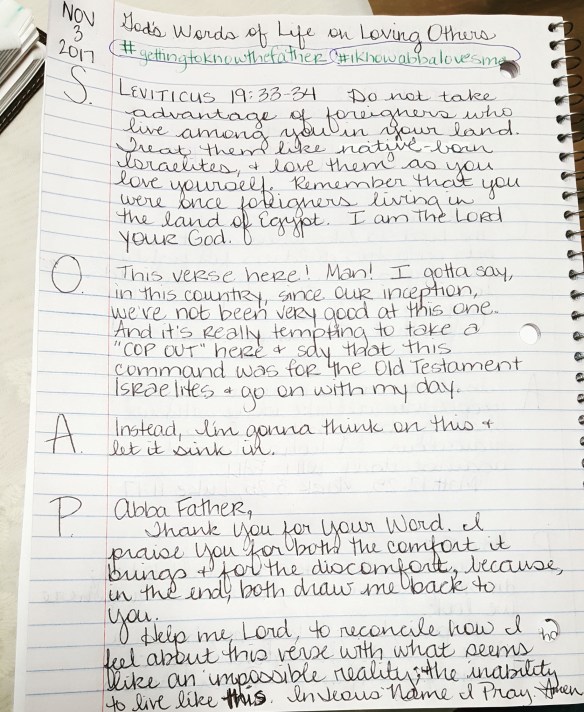 NOV
3
2017
God's Words of Life on Loving Others
#gettingtoknowthefather #iknowabbalovesme
S.
LEVITICUS 19:33-34 Do not take
advantage of foreigners who
live among you in your land.
Treat them like native-born
Israelites, & love them as you
love yourself. Remember that you
were once foreigners living in
the land of Egypt. I am the LORD
your God.
O.
This verse here! Man! I gotta say,
in this country, since our inception,
we've not been very good at this one.
And it's really tempting to take a
"COP OUT" here & say that this
command was for the Old Testament
Israelites & go on with my day.
A.
Instead, I'm gonna think on this &
let it sink in.
P.
Abba Father,
Thank You for Your Word. I
praise You for both the comfort it
brings & for the discomfort, because,
in the end, both draw me back to
You.
Help me, Lord, to reconcile how I
feel about this verse with what seems
like an impossible reality; the inability
to live like this. In Jesus' Name I Pray. Amen